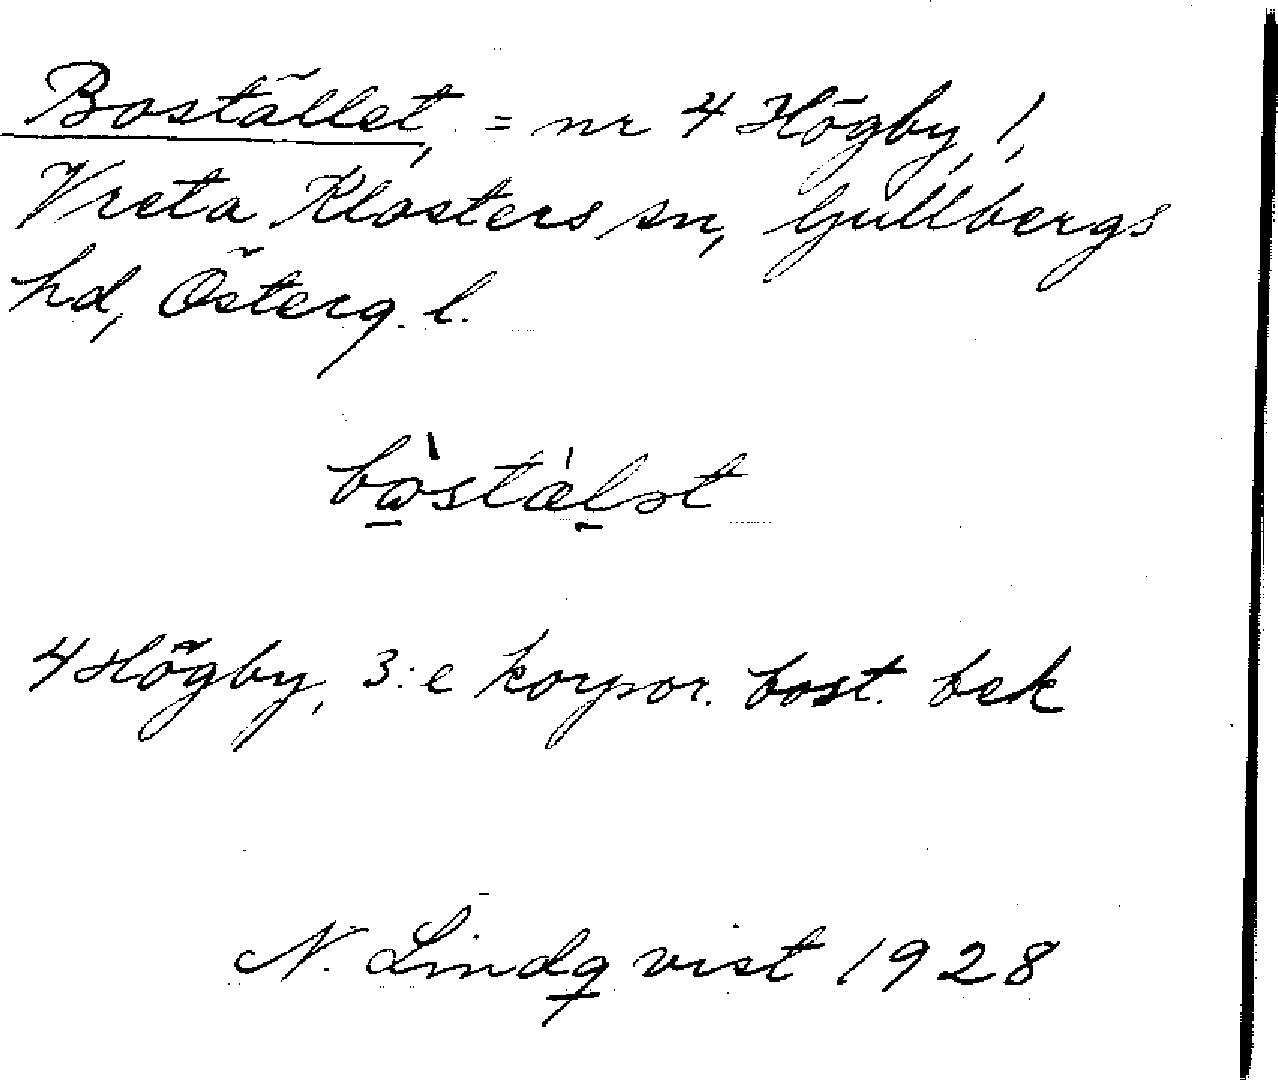 Bostället, = nr 4 Högby, 1,
Vreta Klosters sn, Gullbergs
hd, Österg. l.
bo̲̊̀stæ̀l̲ət
4 Högby, 3:e korpor. bost. bek
N. Lindqvist 1928